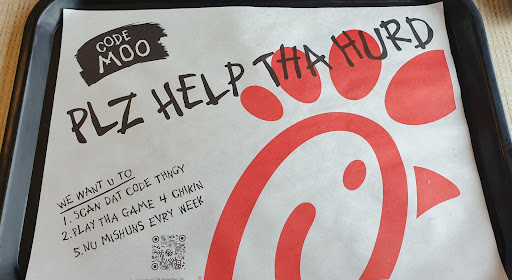 CODE
MOO
PLZ HELP THA HURD
WE WANT U TO
1. SCAN DAT CODE THNGY
2. PLAY THA GAME 4 CHIKIN
5. NU MISHUNS EVRY WEEK